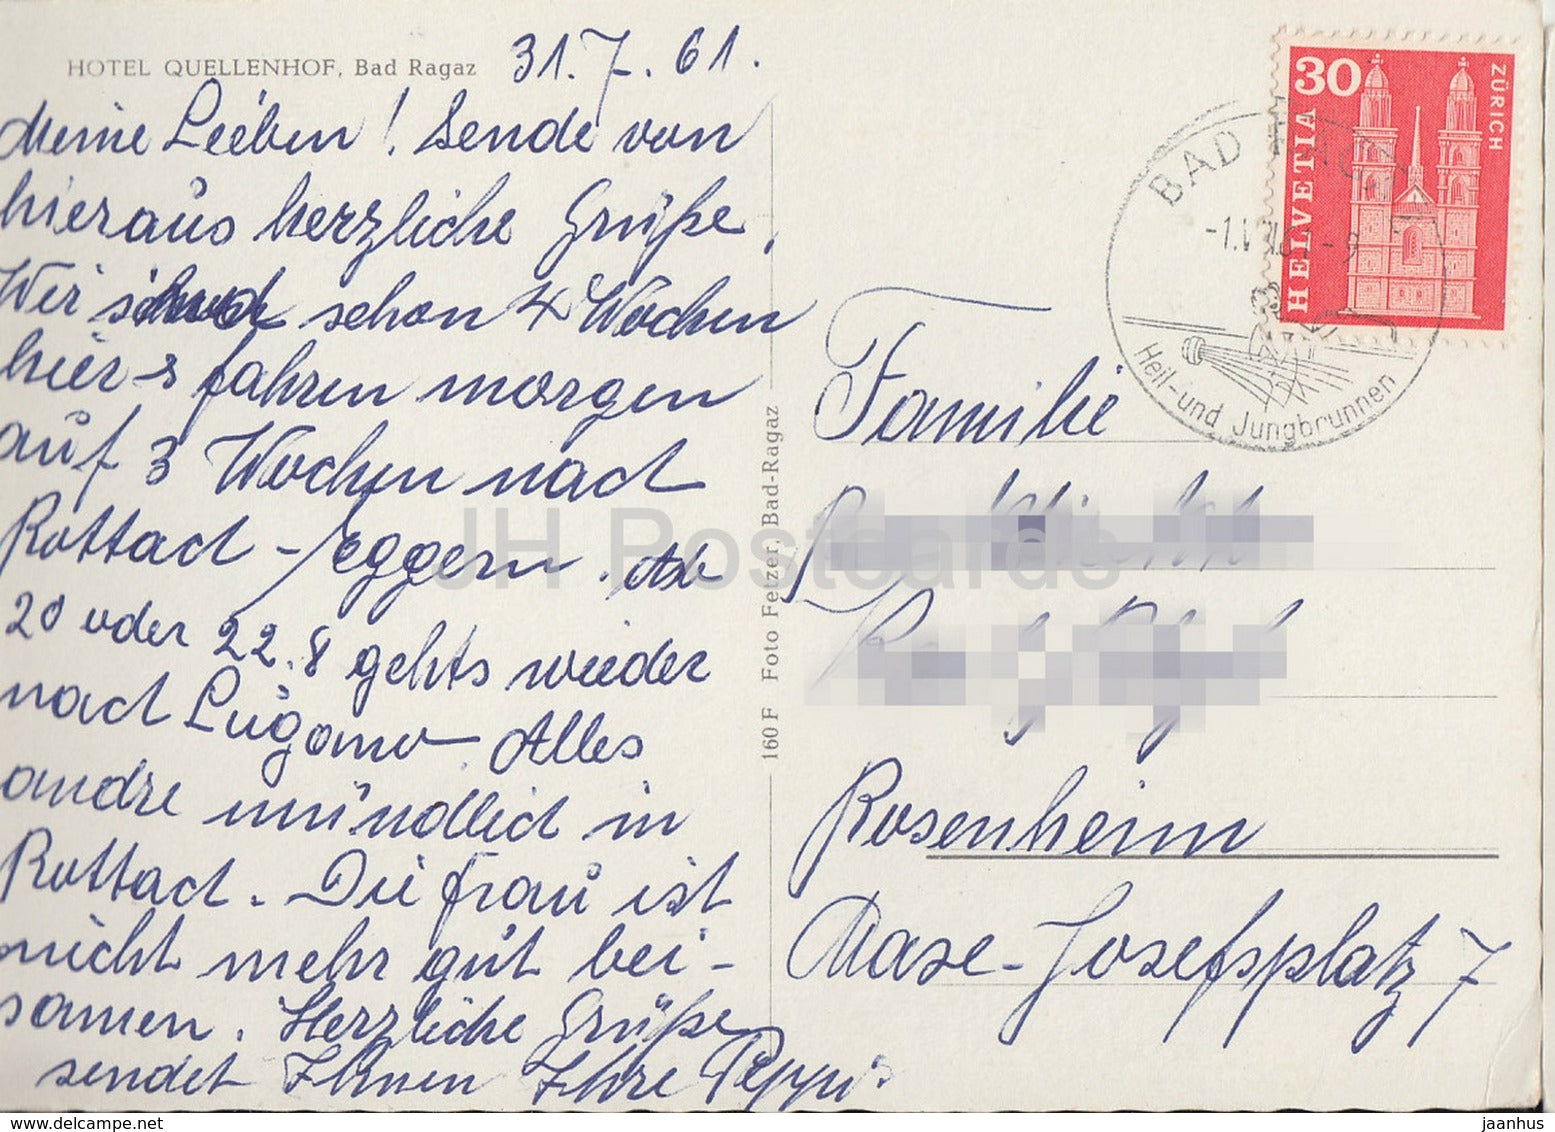 HOTEL QUELLENHOF, Bad Ragaz
31.7.61.
Meine Lieben! Sende von
hieraus herzliche Grüße,
Wir sind schon 4 Wochen
hier & fahren morgen
auf 3 Wochen nach
Rottach-Eggern. Ab
20 oder 22.8 gehts wieder
nach Lugano. Alles
andre mündlich in
Rottach. Die Frau ist
nicht mehr gut bei-
samen. Herzliche Grüße
sendet Ihnen Ihre Peppi
160 F Foto Fetzer, Bad-Ragaz
30
HELVETIA
ZÜRICH
BAD
Heil- und Jungbrunnen
Familie
Rosenheim
Maxe-Josefsplatz 7
JH Postcards
www.delcampe.net
jaanhus